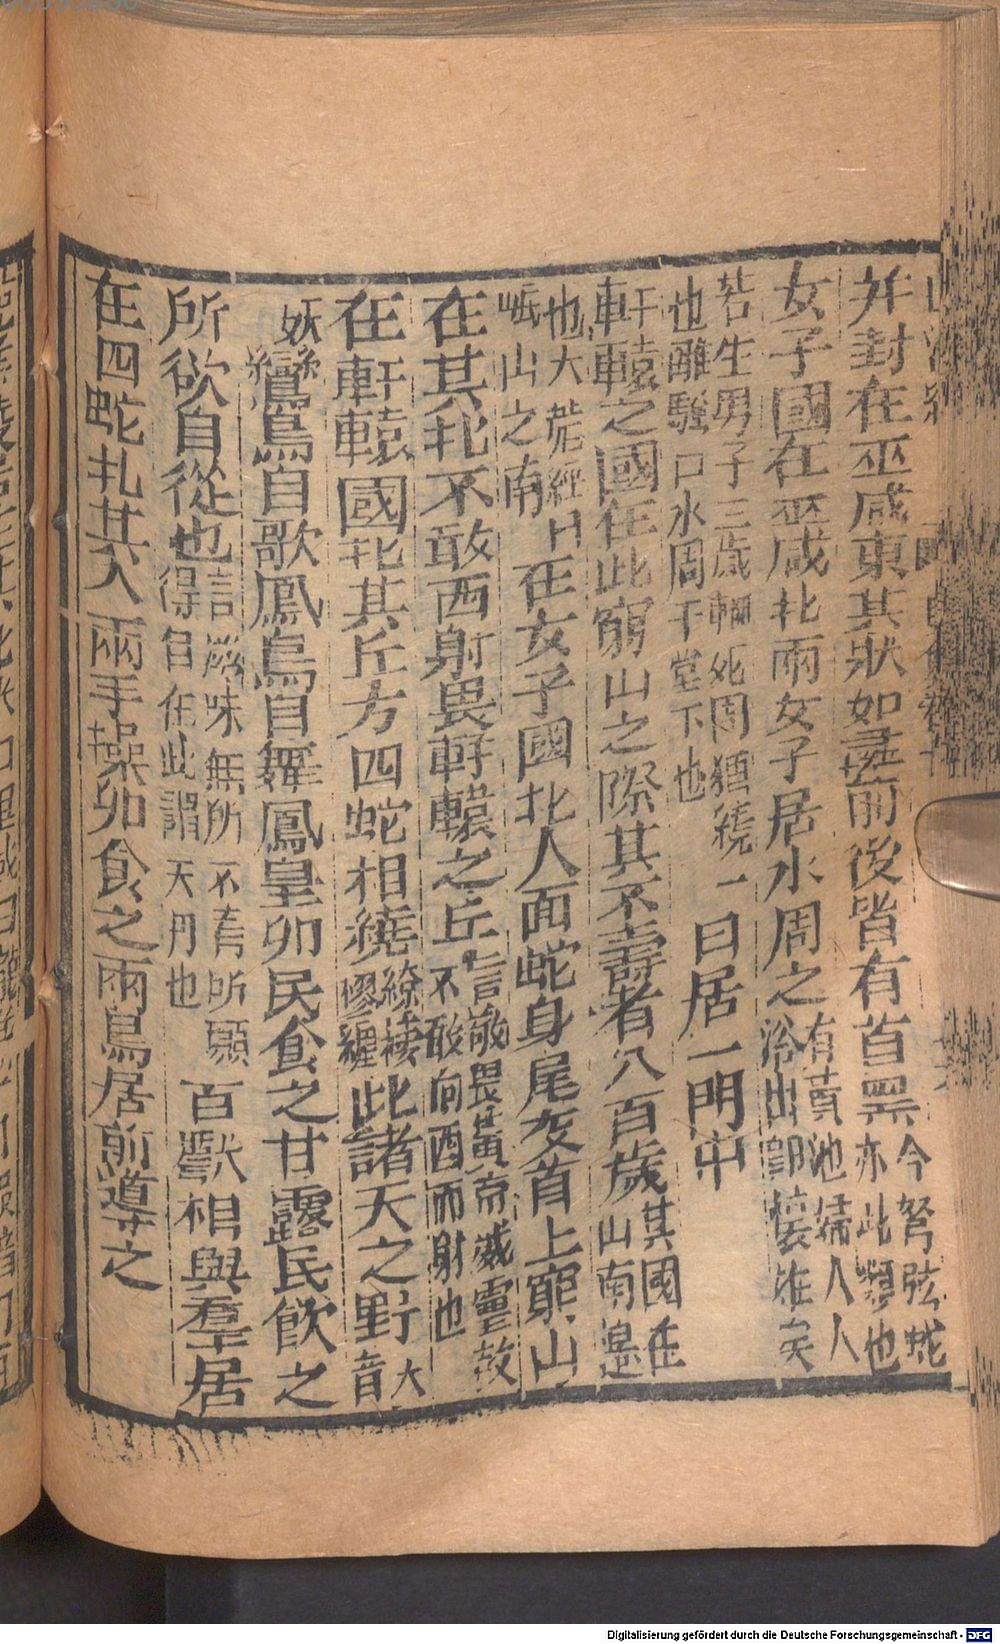 并封在巫咸東其狀如彘前後皆有首黑今弩弦蛇亦此類也
女子國在巫咸北兩女子居水周之有賣池婦人人浴出卽懷姙矣
若生男子三歲輒死周猶繞也離騷口水周干堂下也一曰居一門中
軒轅之國在此窮山之際其不壽者八百歲其國在山南邊
也大荒經曰岷山之南在女子國北人面蛇身尾交首上窮山
在其北不敢西射畏軒轅之丘言敬畏黃帝威靈故不敢向西而射也
在軒轅國北其丘方四蛇相繞繚棲樛纏此諸天之野大音
妖鸞鳥自歌鳳鳥自舞鳳皇卵民食之甘露民飲之
所欲自從也言滋味無所不有所願得自在此謂天丹也百獸相與羣居
在四蛇北其人兩手操卵食之兩鳥居前導之
Digitalisierung gefördert durch die Deutsche Forschungsgemeinschaft - DFG